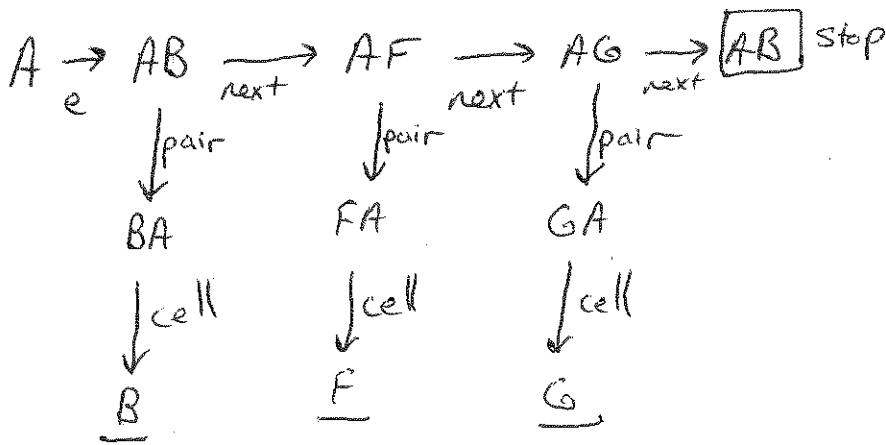 A → AB → AF → AG → AB stop
e next next next
pair pair pair
BA FA GA
cell cell cell
B F G